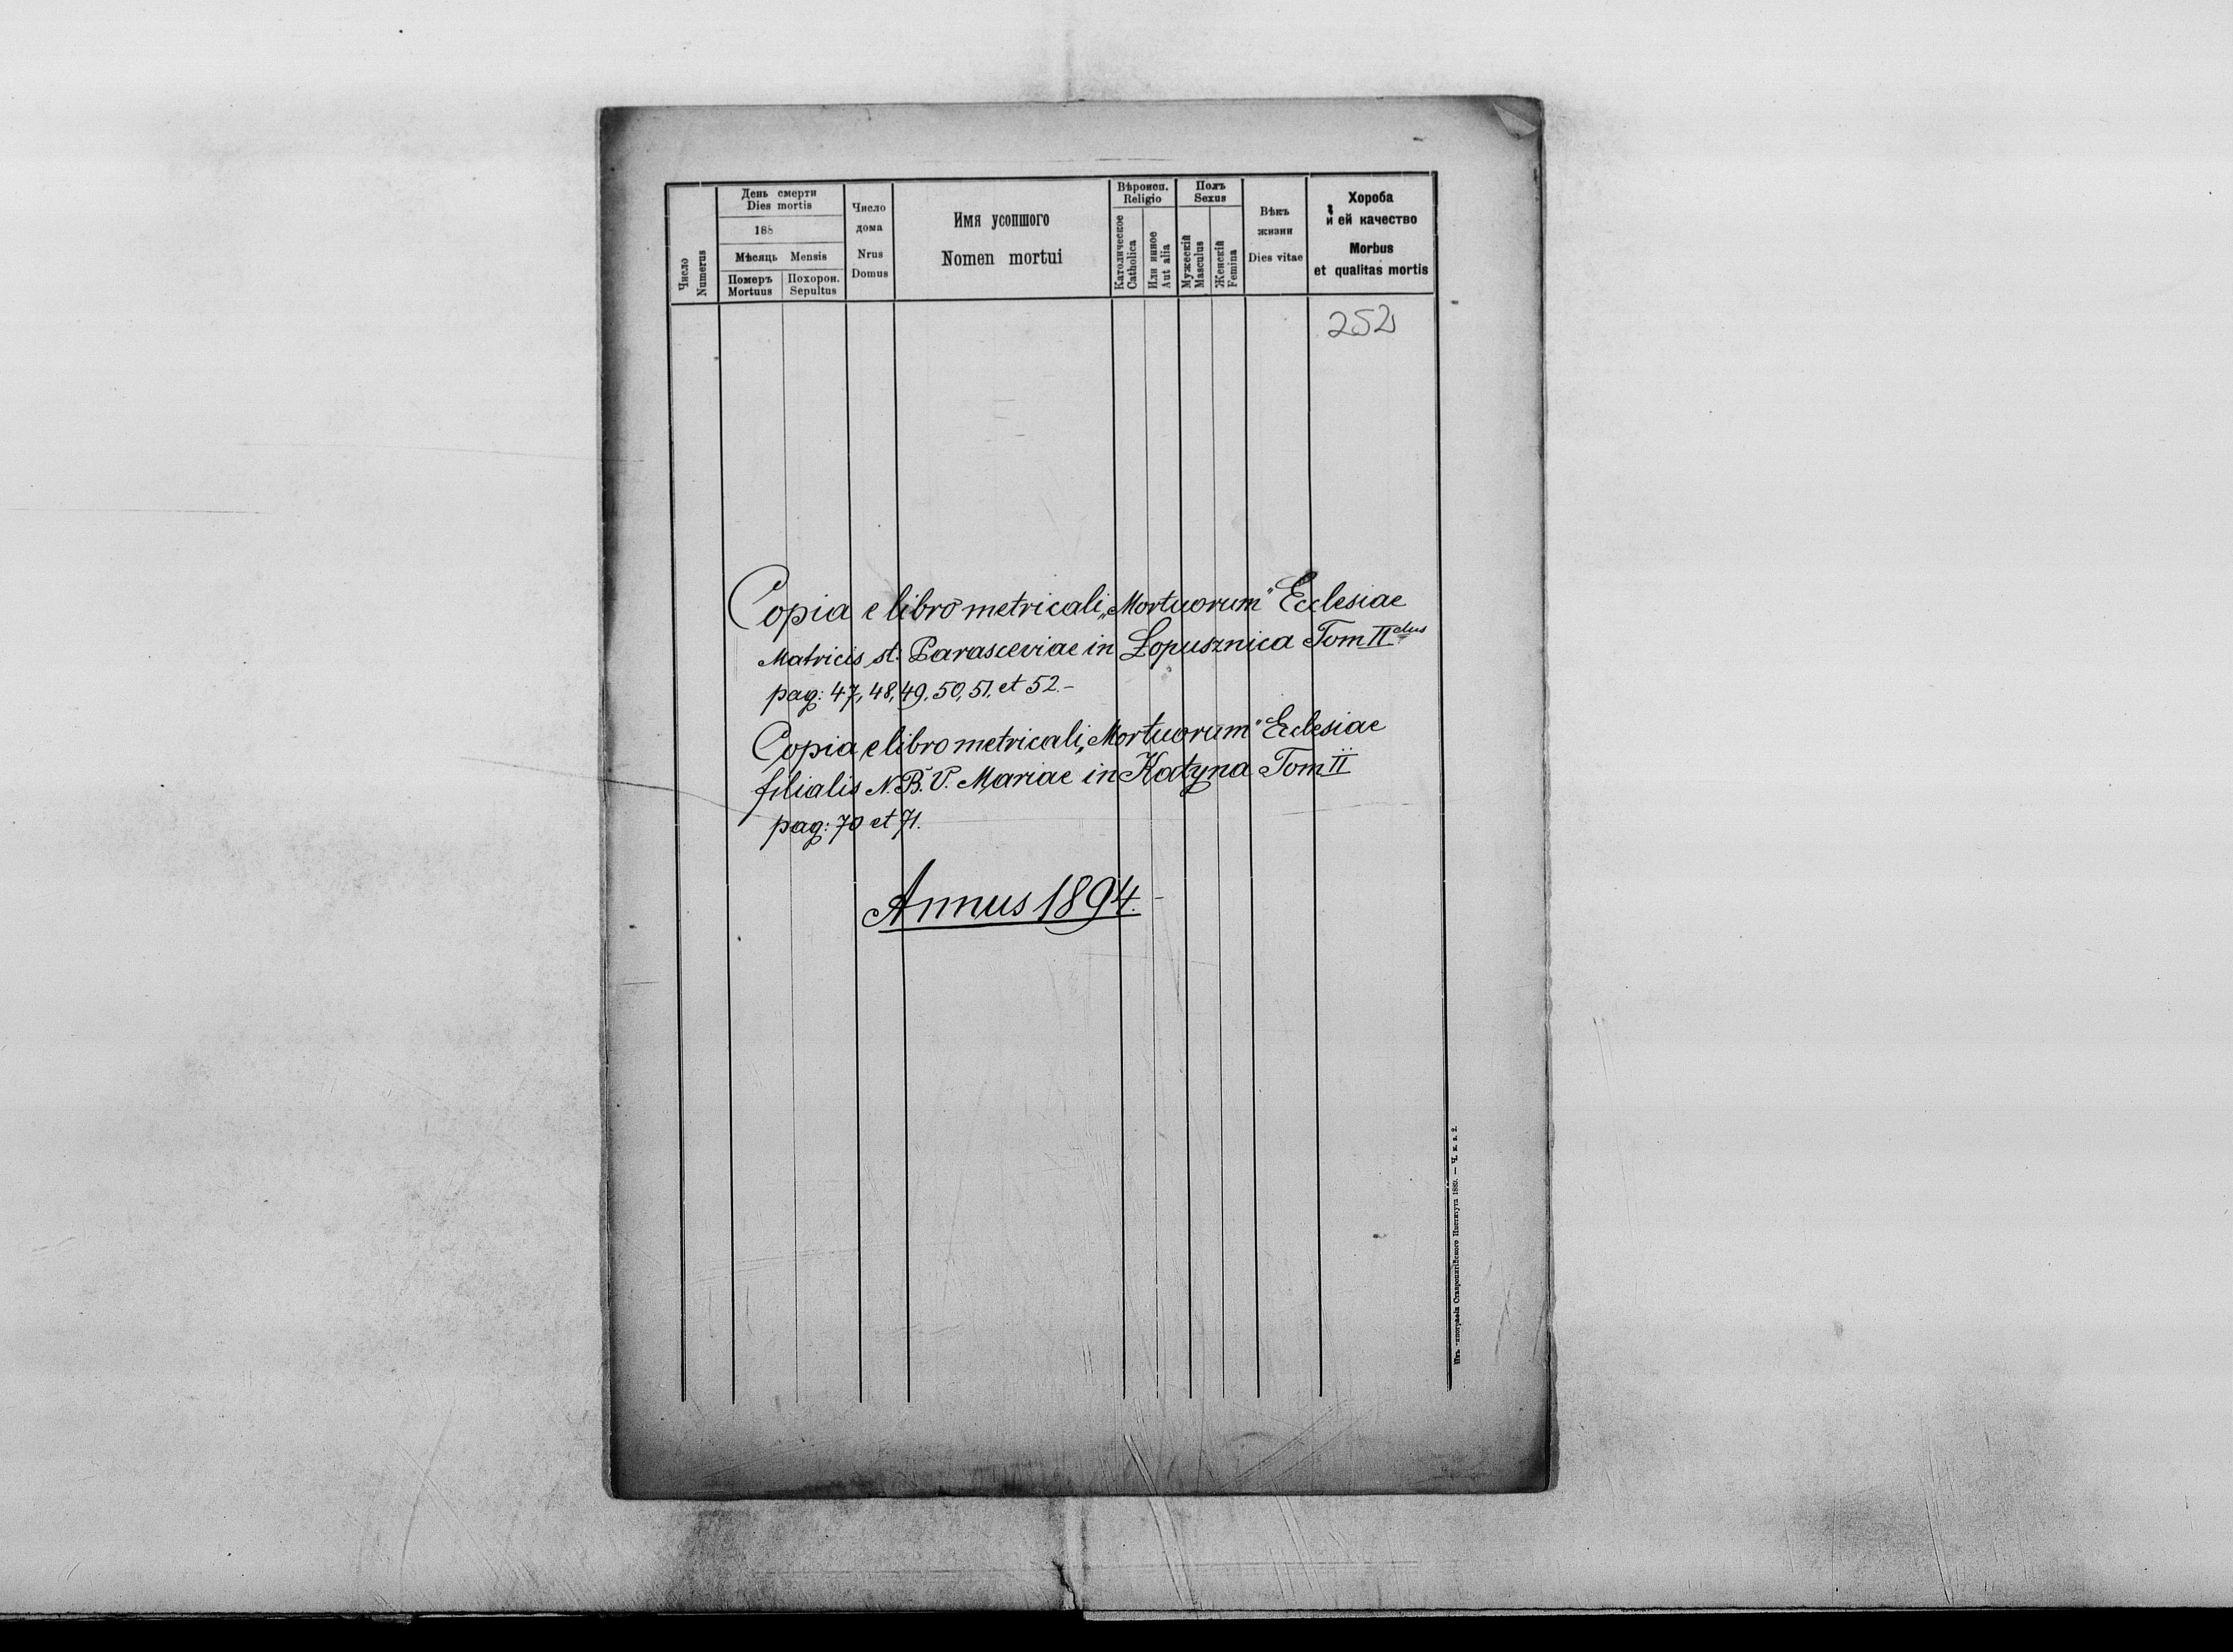 Число
Numerus
День смерти
Dies mortis
188
Мѣсяць Mensis
Померъ
Mortuus
Похорон.
Sepultus
Число
дома
Nrus
Domus
Имя усопшого
Nomen mortui
Вѣроисп.
Religio
Католическое
Catholica
Или инное
Aut alia
Полъ
Sexus
Мужескій
Masculus
Женскій
Femina
Вѣкъ
жизни
Dies vitae
Хороба
и ей качество
Morbus
et qualitas mortis
252
Copia e libro metricali „Mortuorum" Ecclesiae
Matricis st. Parasceviae in Łopusznica Tom II dus
pag: 47, 48, 49, 50, 51, et 52.-
Copia e libro metricali „Mortuorum" Ecclesiae
filialis N.B.V. Mariae in Katyna Tom II
pag: 70 et 71.
Annus 1894.-
Ставропигійского Института 1889. — Ч. к. з. 2.